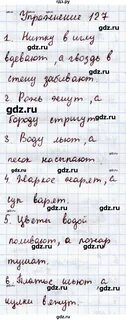 Упражнение 127
1. Нитку в иглу
вдевают, а гвоздь в
стену забивают.
2. Рожь жнут, а
бороду стригут.
3. Воду льют, а
песок насыпают.
4. Жаркое жарят, а
суп варят.
5. Цветы водой
поливают, а пожар
тушат.
6. Платье шьют а
чулки вяжут.